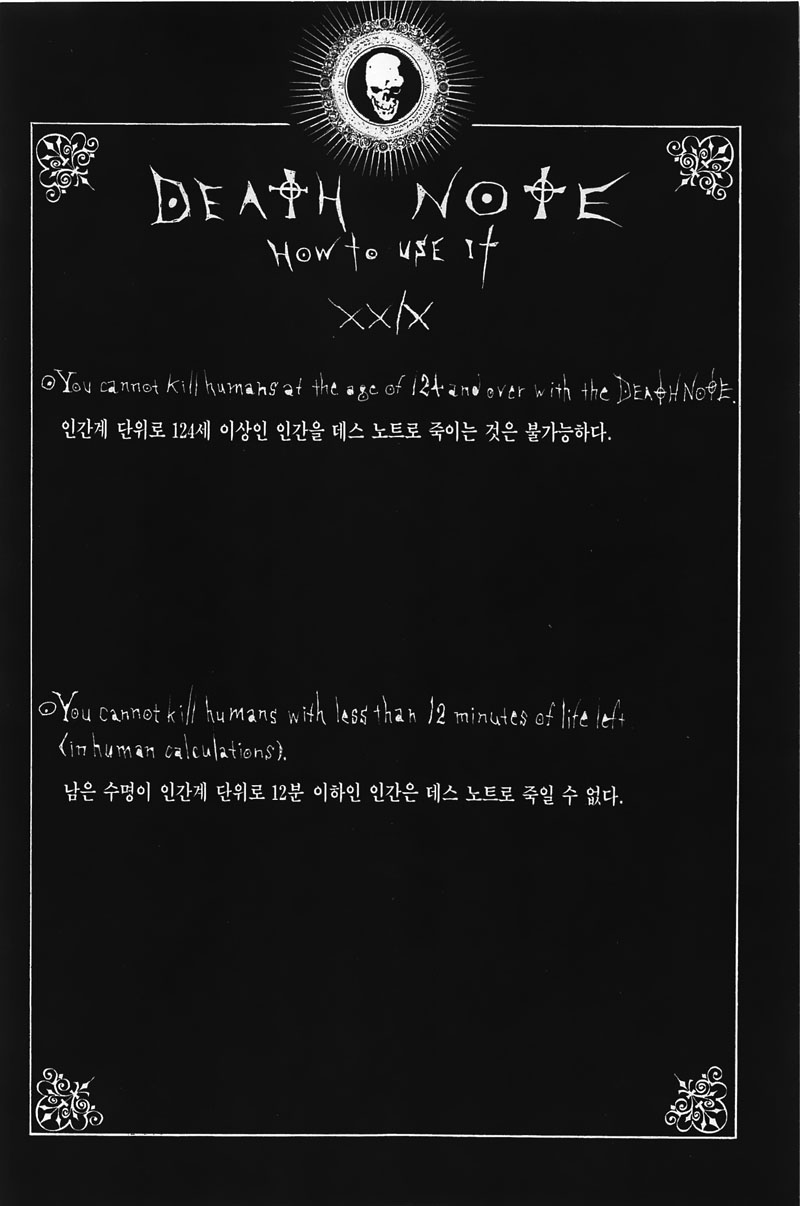 DEATH NOTE
HOW to USE It
XXIX
You cannot kill humans at the age of 124 and over with the DEATH NOTE.
인간계 단위로 124세 이상인 인간을 데스 노트로 죽이는 것은 불가능하다.
You cannot kill humans with less than 12 minutes of life left
(in human calculations).
남은 수명이 인간계 단위로 12분 이하인 인간은 데스 노트로 죽일 수 없다.